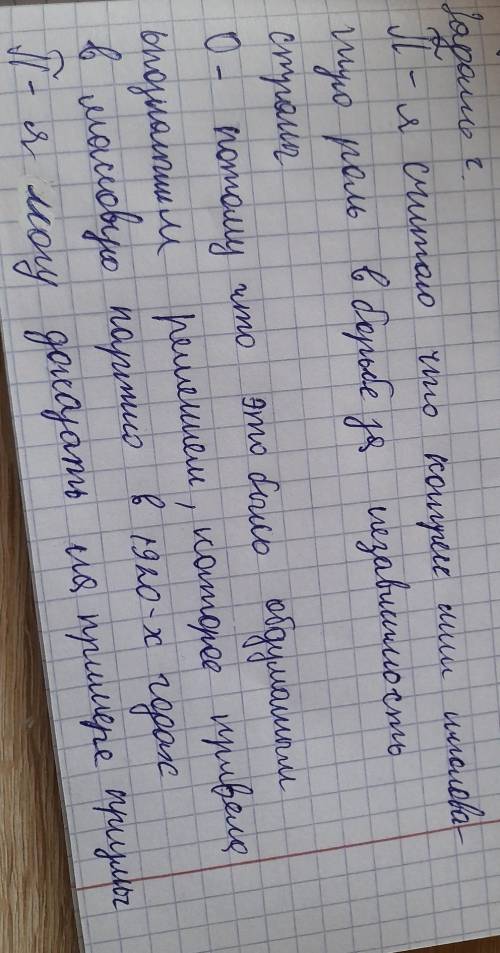 П - я считаю что конгрес
роль в борьбе за независимость
страны
О - потому что это было обдуманым
решением, которое привела
в массовую партию в 1920-х годах
П - я могу доказать на примере призмы